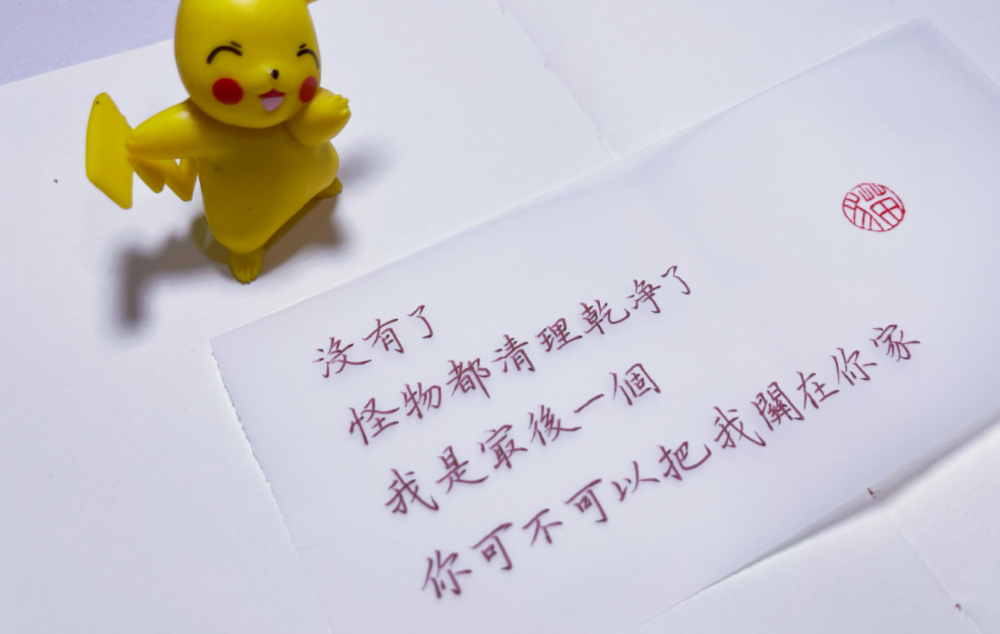 沒有了
怪物都清理乾淨了
我是最後一個
你可不可以把我關在你家